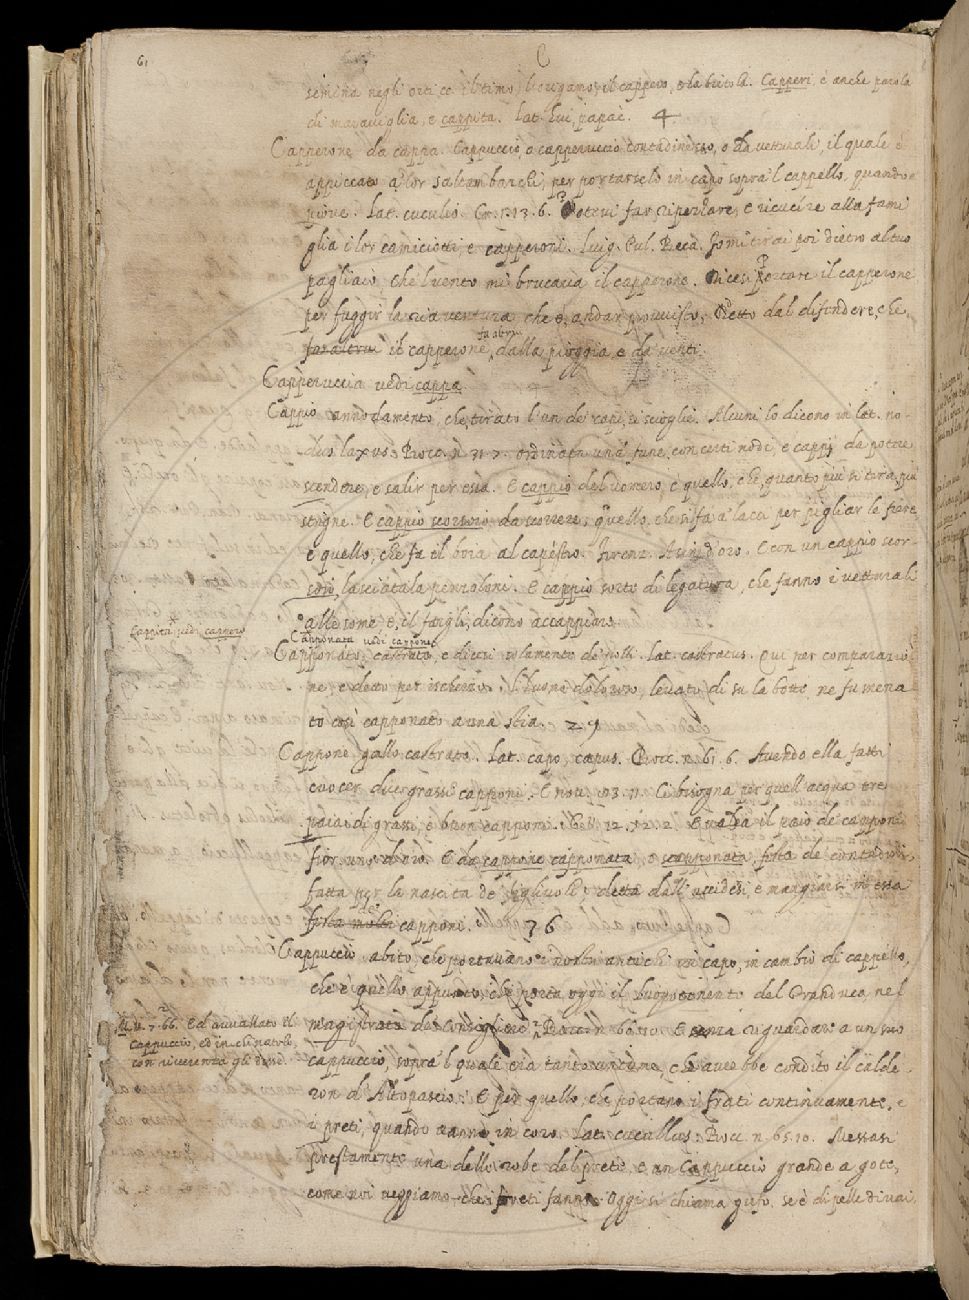 61
C
semina negli orti co il timo, l'origamo, il cappero, e la bietola. Capperi, è anche parola
di maraviglia, e cappita. Lat. hui, papae. 4
Capperone da cappa. Cappuccio, o capperuccio contadinesco, o da vetturali, il quale è
appiccato a' lor saltambarchi, per portarselo in capo sopra 'l cappello, quando e'
piove. Lat. cuculio. Cr. 1. 13. 6. Potrai far ripezzare, e ricucire alla fami
glia i lor camiciotti, e capperoni. Luig. Pul. Beca. Po mi tirai poi dietro al tuo
pagliaio, che 'l vento mi brucava il capperone. Dicesi portare il capperone
per fuggir la ria ventura che è, andar provvisto, detto dal difendere, che
fa altrui
il capperone, dalla pioggia, e da venti.
Capperuccia vedi cappa.
Cappio annodamento, che, tirato l'un de' capi, si scioglie. Alcuni lo dicono in lat. no-
dus laxus. Bocc. n. 31. 7. ordinata una fune con certi nodi, e cappi da potere
scendere, e salir per essa. E cappio del vomero, è quello, che, quanto più si tira, più
strigne. E cappio scorsoio da scorrere, quello, che si fa a' lacci per pigliar le fiere
e quello, che fa il boia al capestro. Firenz. Asin. d'oro. E con un cappio scor-
soio, lasciatala penzoloni. E cappio sorto di legatura, che fanno i vetturali
alle some e, il fargli, dicono accappiare.
Cappita vedi cappero
Capponata vedi cappone
Capponato, castrato, e dicesi solamente de' polli. Lat. castratus. Qui per comparazio
ne, e detto per ischerzo. il buono doloroso, levato di su la botte, ne fu mena
to così capponato a una stia. 29
Cappone, gallo castrato. Lat. capo, capus. Bocc. n. 61. 6. Avendo ella fatti
cuocer due grassi capponi. E nov. 73. 11. Ci bisogna per quell'acqua tre
paia di grassi, e buon capponi. 12. 12. 2. E valea il paio de capponi
fior. uno d'oro. E da cappone capponata, o scapponata, festa de' contadini,
fatta per la nascita de' figliuoli, detta dall'uccidersi e mangiarsi in essa
de' capponi. 76
Cappuccio abito, che portavano i nostri antichi in capo, in cambio di cappello,
che è quello appunto, che porta oggi il luogotenente del Granduca, nel
magistrato de' Consiglieri. Bocc. n. 60. 10. E senza riguardar a un suo
M. V. 7. 66. Ed avvallato il
cappuccio, ed inchinatolo,
con riverenza gli disse.
cappuccio, sopra 'l quale era tanto untume, che avrebbe condito il calde-
ron d'Altopascio. E per quello, che portano i frati continuamente, e
i preti, quando vanno in coro. Lat. cucullus. Bocc. n. 65. 10. Messasi
prestamente una delle robe del prete, e un cappuccio grande a gote,
come noi veggiamo che i preti fanno. Oggi si chiama gufo, se è di pelle di vai,